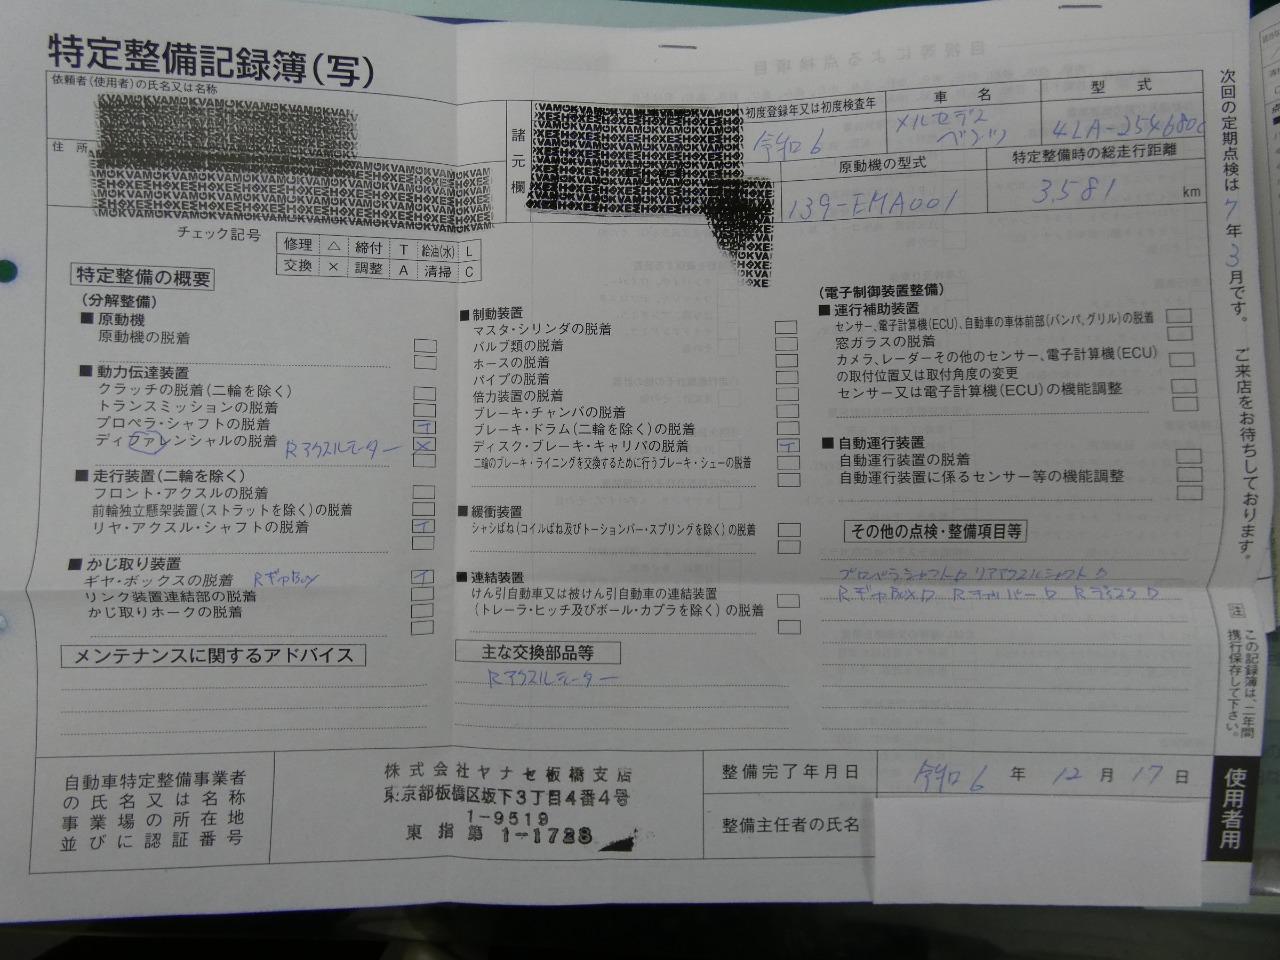 特定整備記録簿(写)
依頼者(使用者)の氏名又は名称
住所
諸元欄
初度登録年又は初度検査年
令和6
車名
メルセデス
ベンツ
型式
4LA-254680c
原動機の型式
139-EMA001
特定整備時の総走行距離
3,581 km
チェック記号
修理 △ 締付 T 給油(水) L
交換 × 調整 A 清掃 C
特定整備の概要
(分解整備)
■ 原動機
原動機の脱着
■ 動力伝達装置
クラッチの脱着(二輪を除く)
トランスミッションの脱着
プロペラ・シャフトの脱着 T
ディファレンシャルの脱着 Rアクスルモーター ×
■ 走行装置(二輪を除く)
フロント・アクスルの脱着
前輪独立懸架装置(ストラットを除く)の脱着
リヤ・アクスル・シャフトの脱着 T
■ かじ取り装置
ギヤ・ボックスの脱着 RギヤBox T
リンク装置連結部の脱着
かじ取りホークの脱着
メンテナンスに関するアドバイス
■ 制動装置
マスタ・シリンダの脱着
バルブ類の脱着
ホースの脱着
パイプの脱着
倍力装置の脱着
ブレーキ・チャンバの脱着
ブレーキ・ドラム(二輪を除く)の脱着
ディスク・ブレーキ・キャリパの脱着 T
二輪のブレーキ・ライニングを交換するために行うブレーキ・シューの脱着
■ 緩衝装置
シャシばね(コイルばね及びトーションバー・スプリングを除く)の脱着
■ 連結装置
けん引自動車又は被けん引自動車の連結装置
(トレーラ・ヒッチ及びボール・カプラを除く)の脱着
主な交換部品等
Rアクスルモーター
(電子制御装置整備)
■ 運行補助装置
センサー、電子計算機(ECU)、自動車の車体前部(バンパ、グリル)の脱着
窓ガラスの脱着
カメラ、レーダーその他のセンサー、電子計算機(ECU)
の取付位置又は取付角度の変更
センサー又は電子計算機(ECU)の機能調整
■ 自動運行装置
自動運行装置の脱着
自動運行装置に係るセンサー等の機能調整
その他の点検・整備項目等
プロペラシャフト リアアクスルシャフト
RギヤBox Rキャリパー Rディスク
次回の定期点検は7年3月です。 ご来店をお待ちしております。
注 この記録簿は、二年間
携行保存して下さい。
使用者用
自動車特定整備事業者
の氏名又は名称
事業場の所在地
並びに認証番号
株式会社ヤナセ板橋支店
東京都板橋区坂下3丁目4番4号
1-9519
東指第1-1728
整備完了年月日 令和6年12月17日
整備主任者の氏名